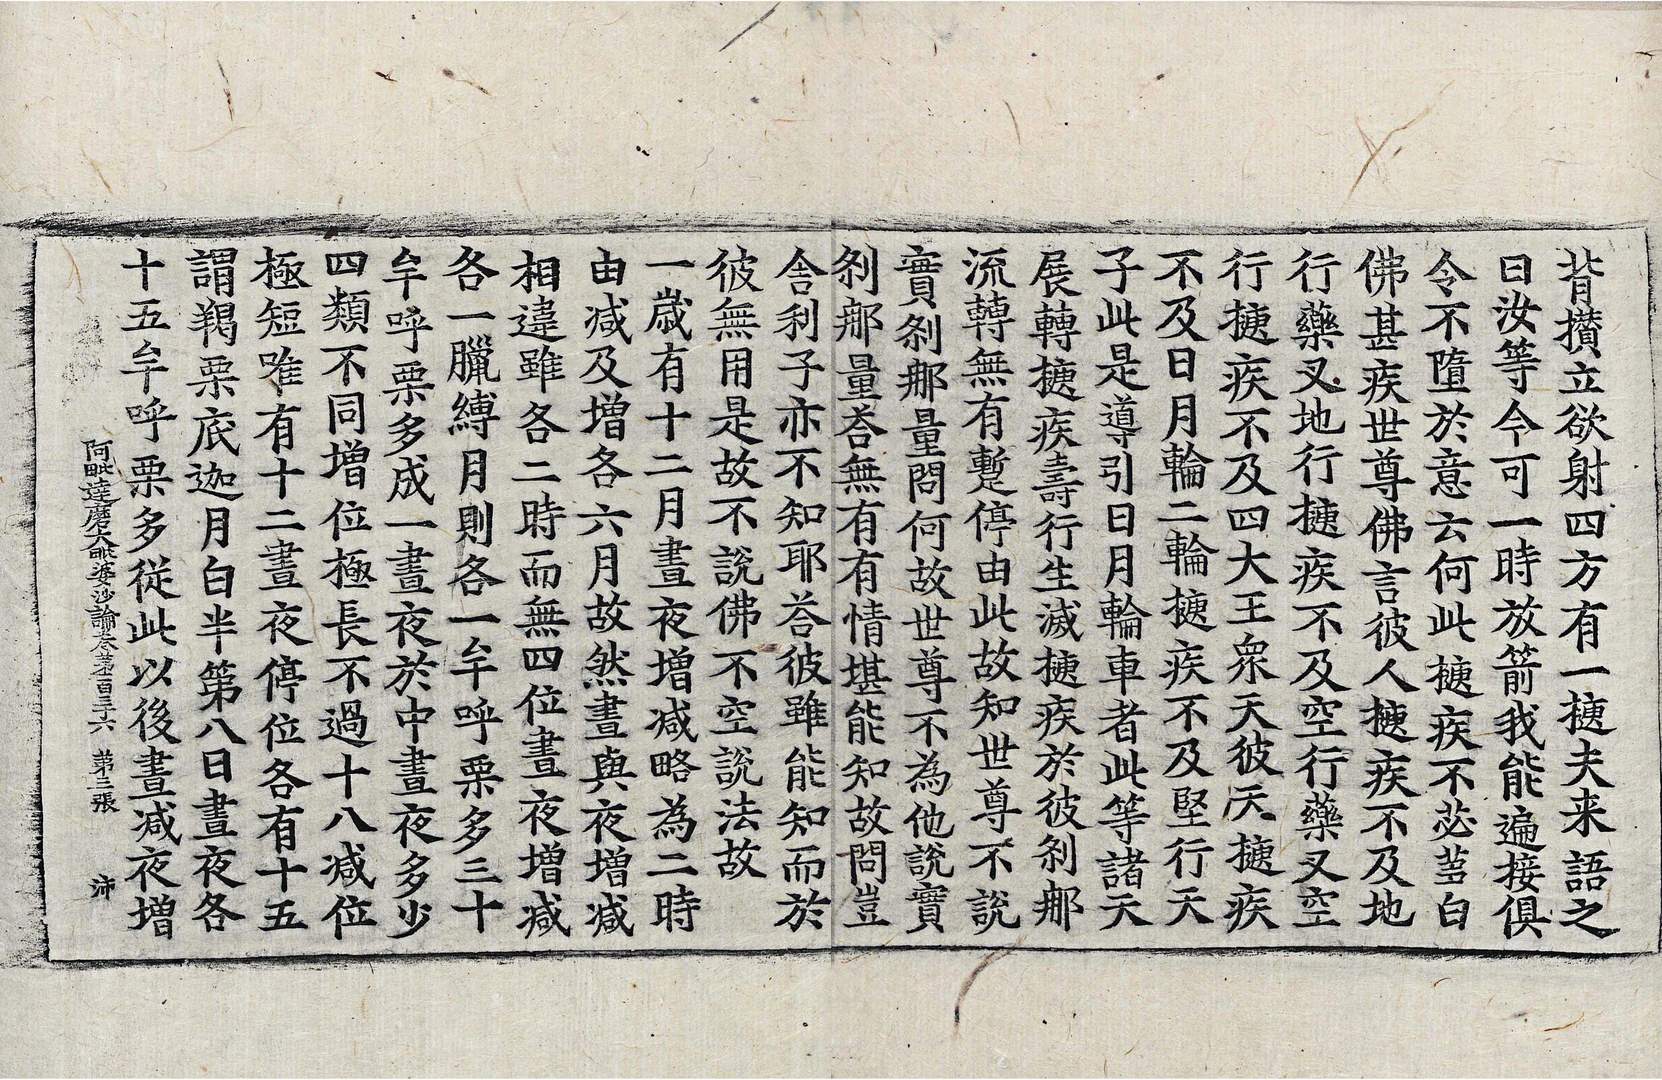 背攢立欲射四方有一𢮿疾夫来語之
曰汝等今可一時放箭我能遍接俱
令不墮於意云何此㨗疾不苾芻白
佛甚疾世尊佛言彼人㨗疾不及地
行藥叉地行㨗疾不及空行藥叉空
行㨗疾不及四大王衆天彼天㨗疾
不及日月輪二輪㨗疾不及堅行天
子此是導引日月輪車者此等諸天
展轉㨗疾壽行生滅㨗疾於彼刹那
流轉無有蹔停由此故知世尊不說
實刹那量問何故世尊不為他說實
刹那量荅無有有情堪能知故問豈
舎利子亦不知耶荅彼雖能知而於
彼無用是故不說佛不空說法故
一歳有十二月晝夜增减略為二時
由减及增各六月故然晝與夜增减
相違雖各二時而無四位晝夜增减
各一臘縛月則各一牟呼栗多三十
牟呼栗多成一晝夜於中晝夜多少
四類不同增位極長不過十八减位
極短唯有十二晝夜停位各有十五
謂羯栗底迦月白半第八日晝夜各
十五牟呼栗多從此以後晝减夜增
阿毗達磨大毗婆沙論卷第一百三十六 第三張 沛